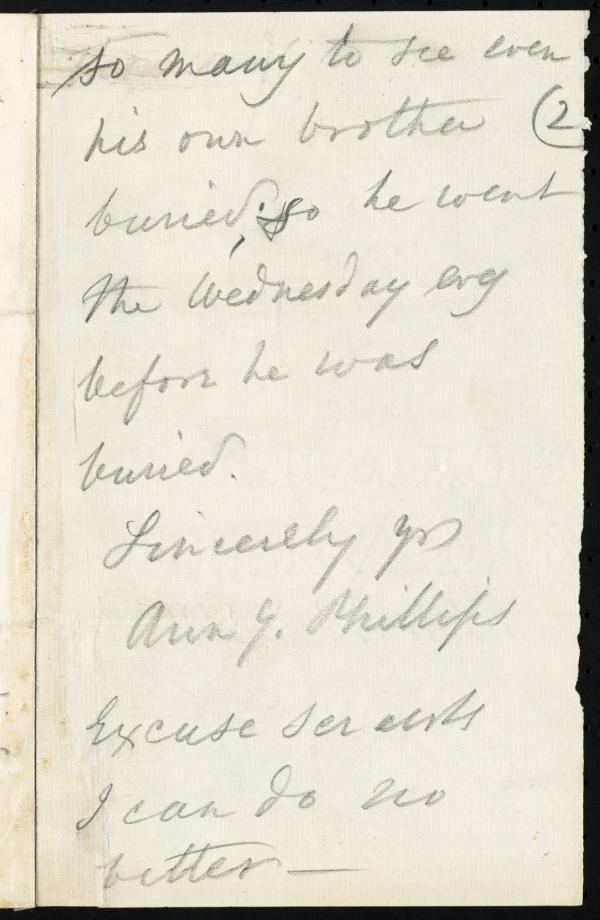 so many to see even
his own brother (2
buried, so he went
the Wednesday evg
before he was
buried.
Sincerely yrs
Ann G. Phillips
Excuse
I can do no
better —